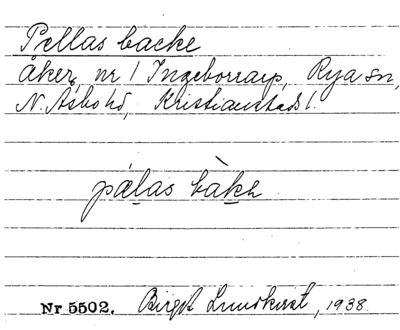 Pellas backe
Åker, nr 1 Ingeborrarp, Rya sn,
N. Åsbo hd, Kristianstads l.
pælas bàkə
Nr 5502. Birgit Lundkvist, 1938